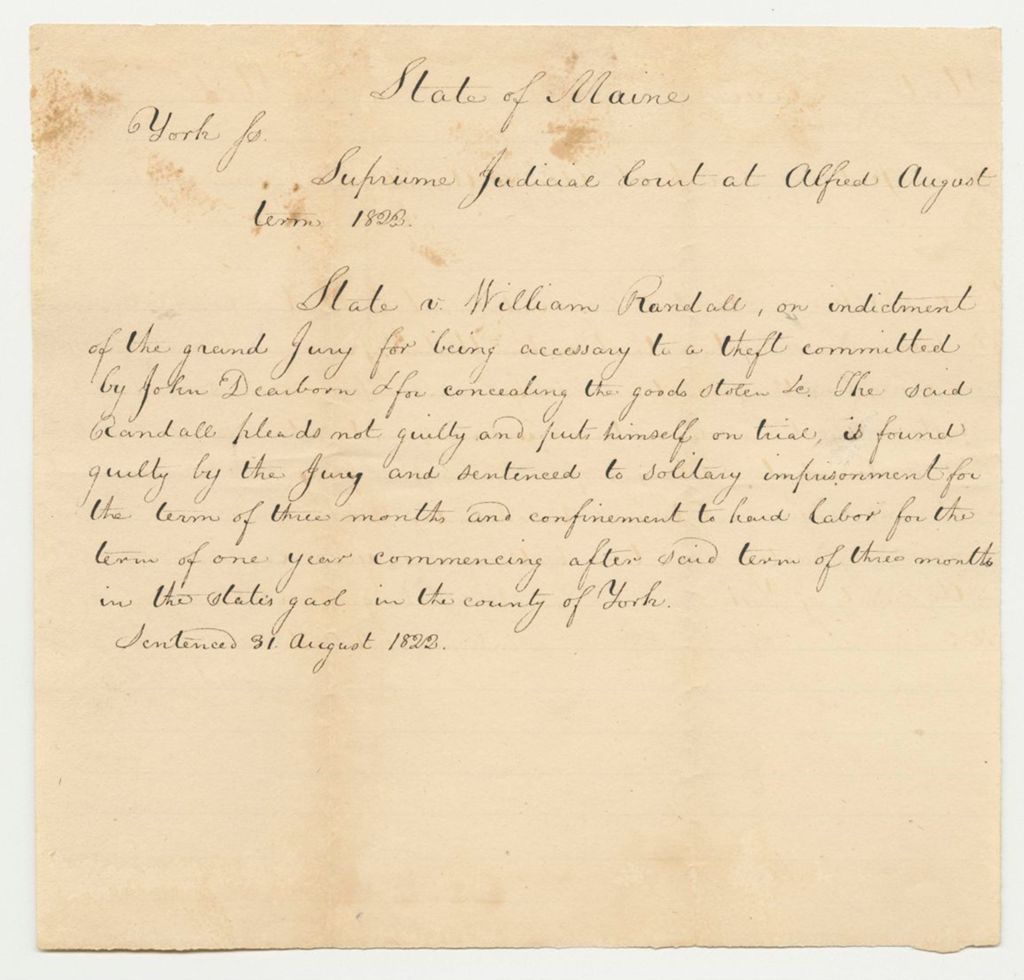 State of Maine
York ss.
Supreme Judicial Court at Alfred August
term 1822.
State v. William Randall, on indictment
of the grand Jury for being accessary to a theft committed
by John Dearborn & for concealing the goods stolen &c. The said
Randall pleads not guilty and puts himself on trial, is found
guilty by the Jury and sentenced to solitary imprisonment for
the term of three months and confinement to hard labor for the
term of one year commencing after said term of three months
in the state's gaol in the county of York.
Sentenced 31. August 1822.